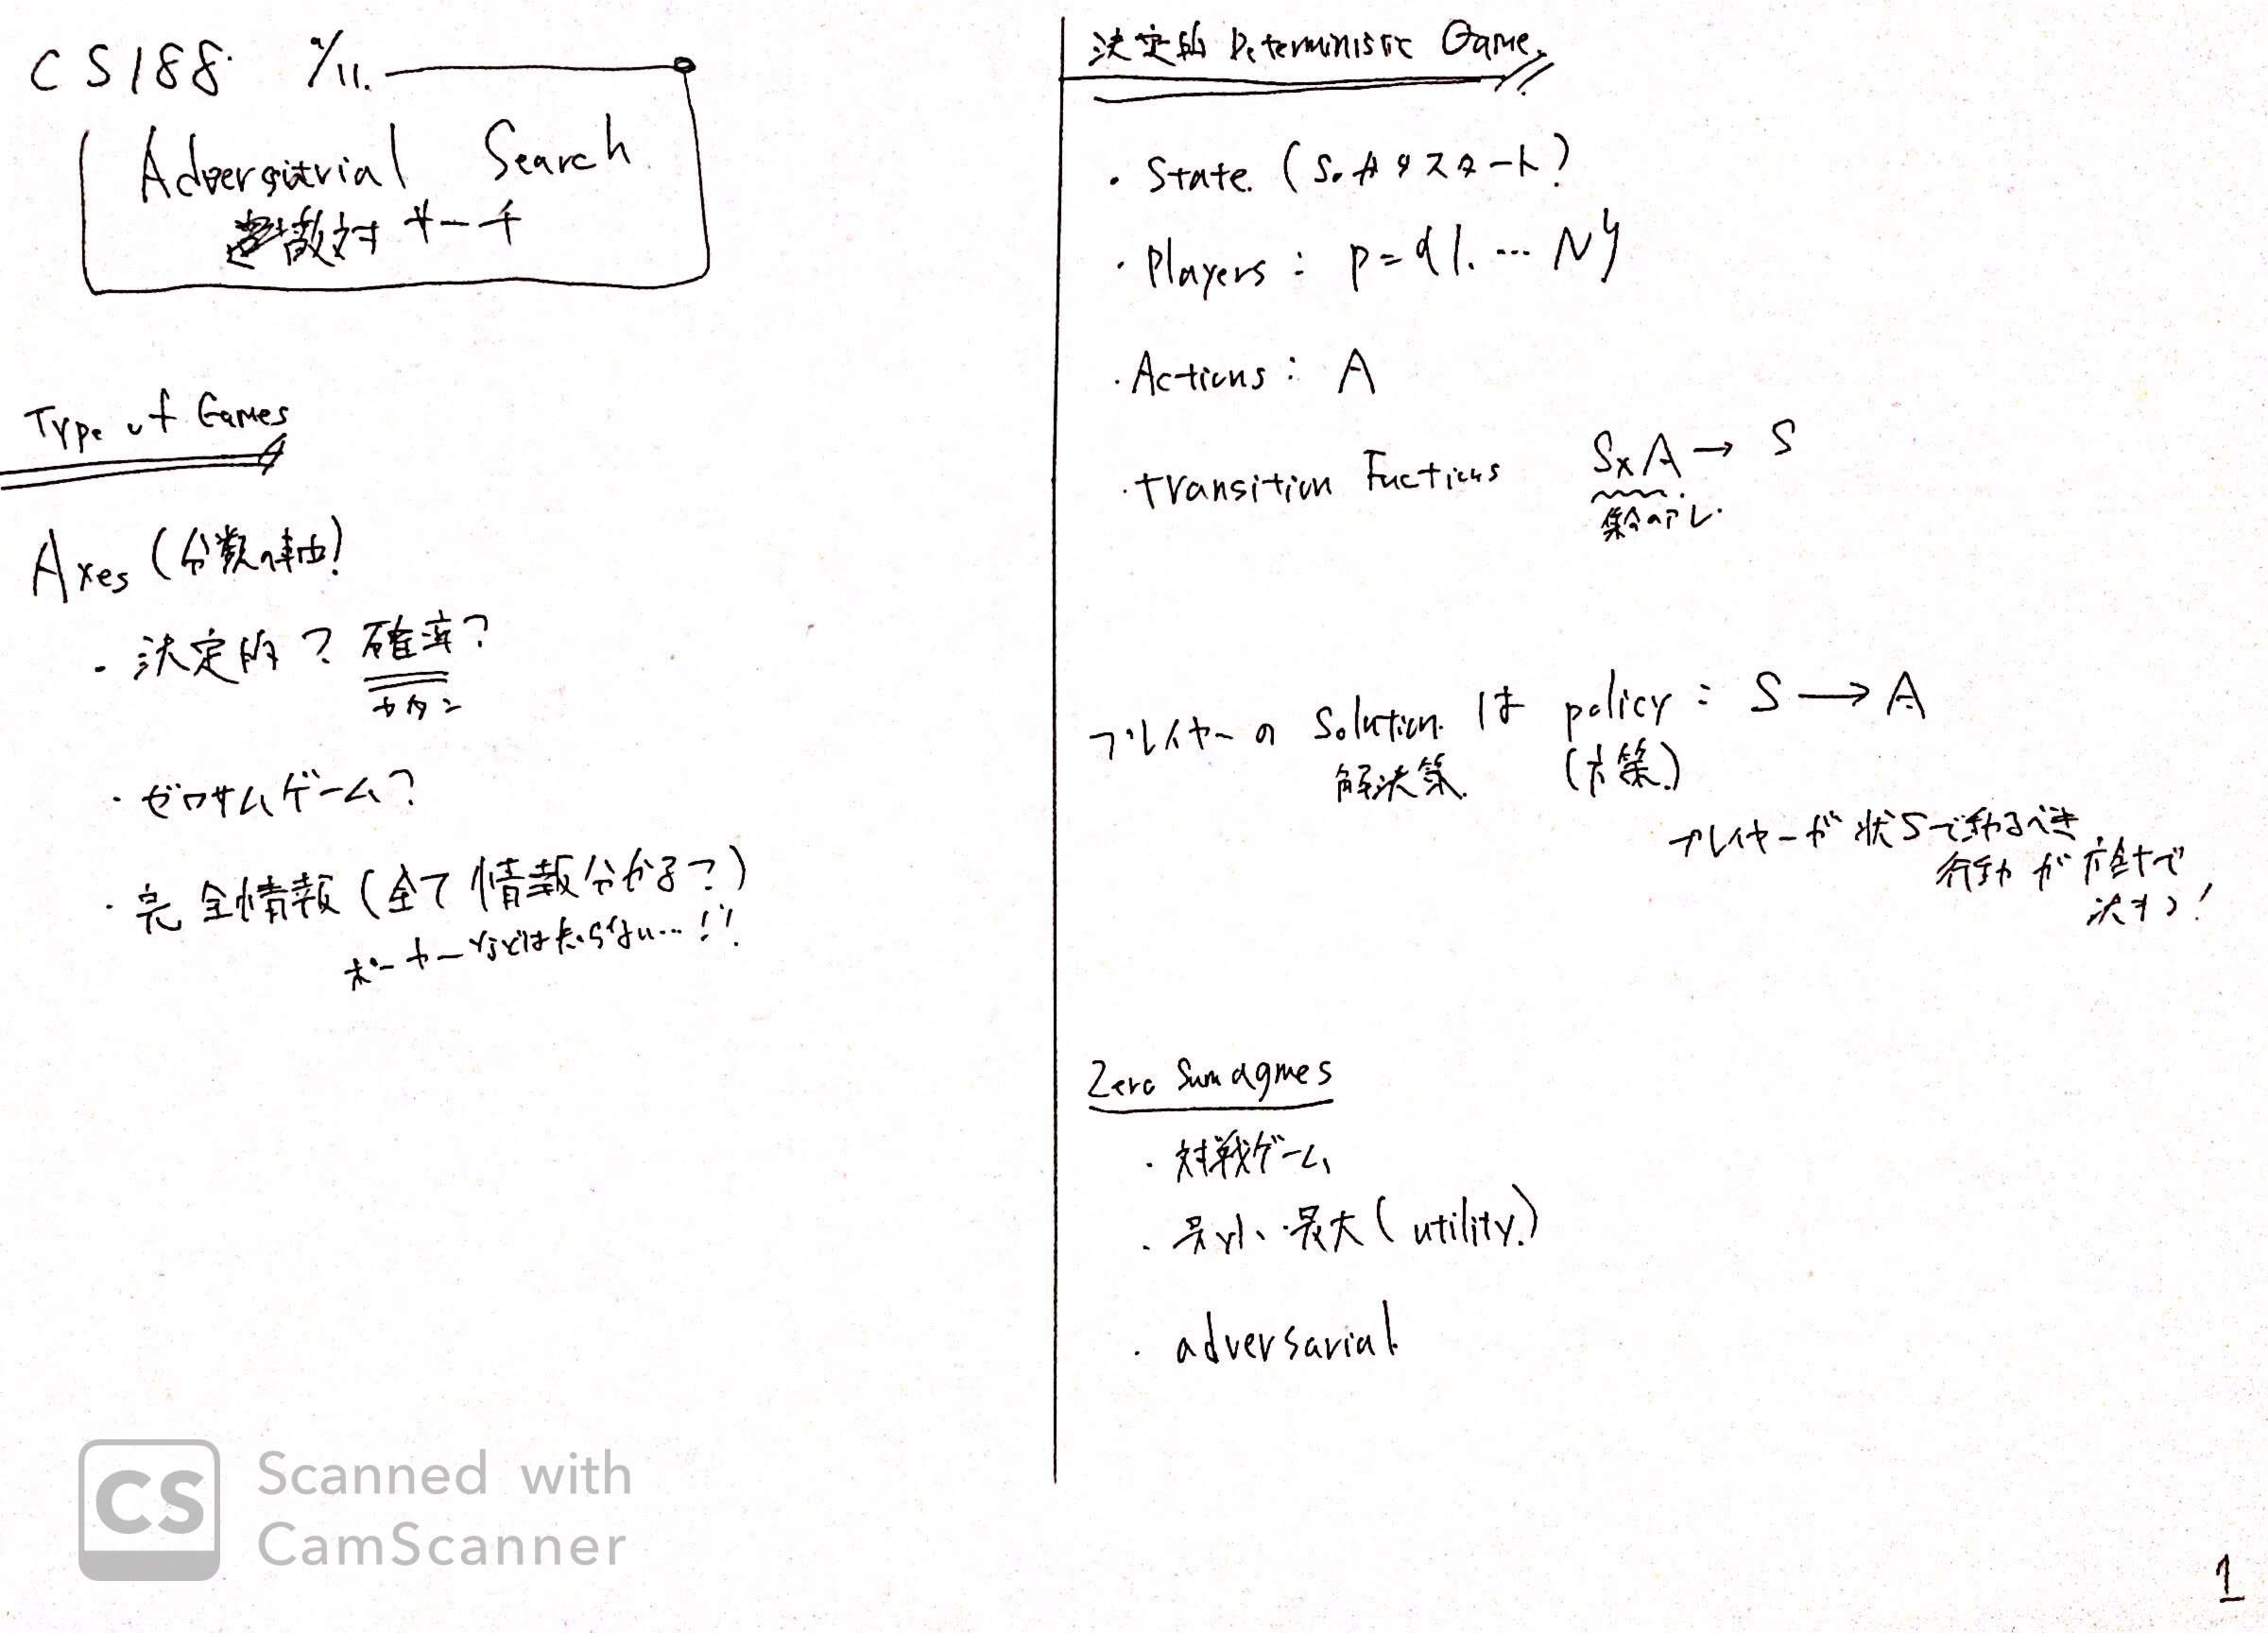 CS188 9/11.
Adversitrial Search
敵対サーチ
Type of Games
Axes (分類の軸!
・決定的? 確率?
カタン
・ゼロサムゲーム?
・完全情報 (全て情報分かる?)
ポーカーなどは知らない…!!
決定的 Deterministic Game.
・State. (S₀からスタート?)
・Players : P={1. … N}
・Actions : A
・transition Fuctions S×A → S
集合のアレ.
プレイヤーの Solution. は policy : S → A
解決策. (方策.)
プレイヤーが状Sで動るべき
行動が方針で
決まる!
Zero Sum agmes
・対戦ゲーム
・最小・最大 (utility.)
・adversarial
CS Scanned with
CamScanner
1